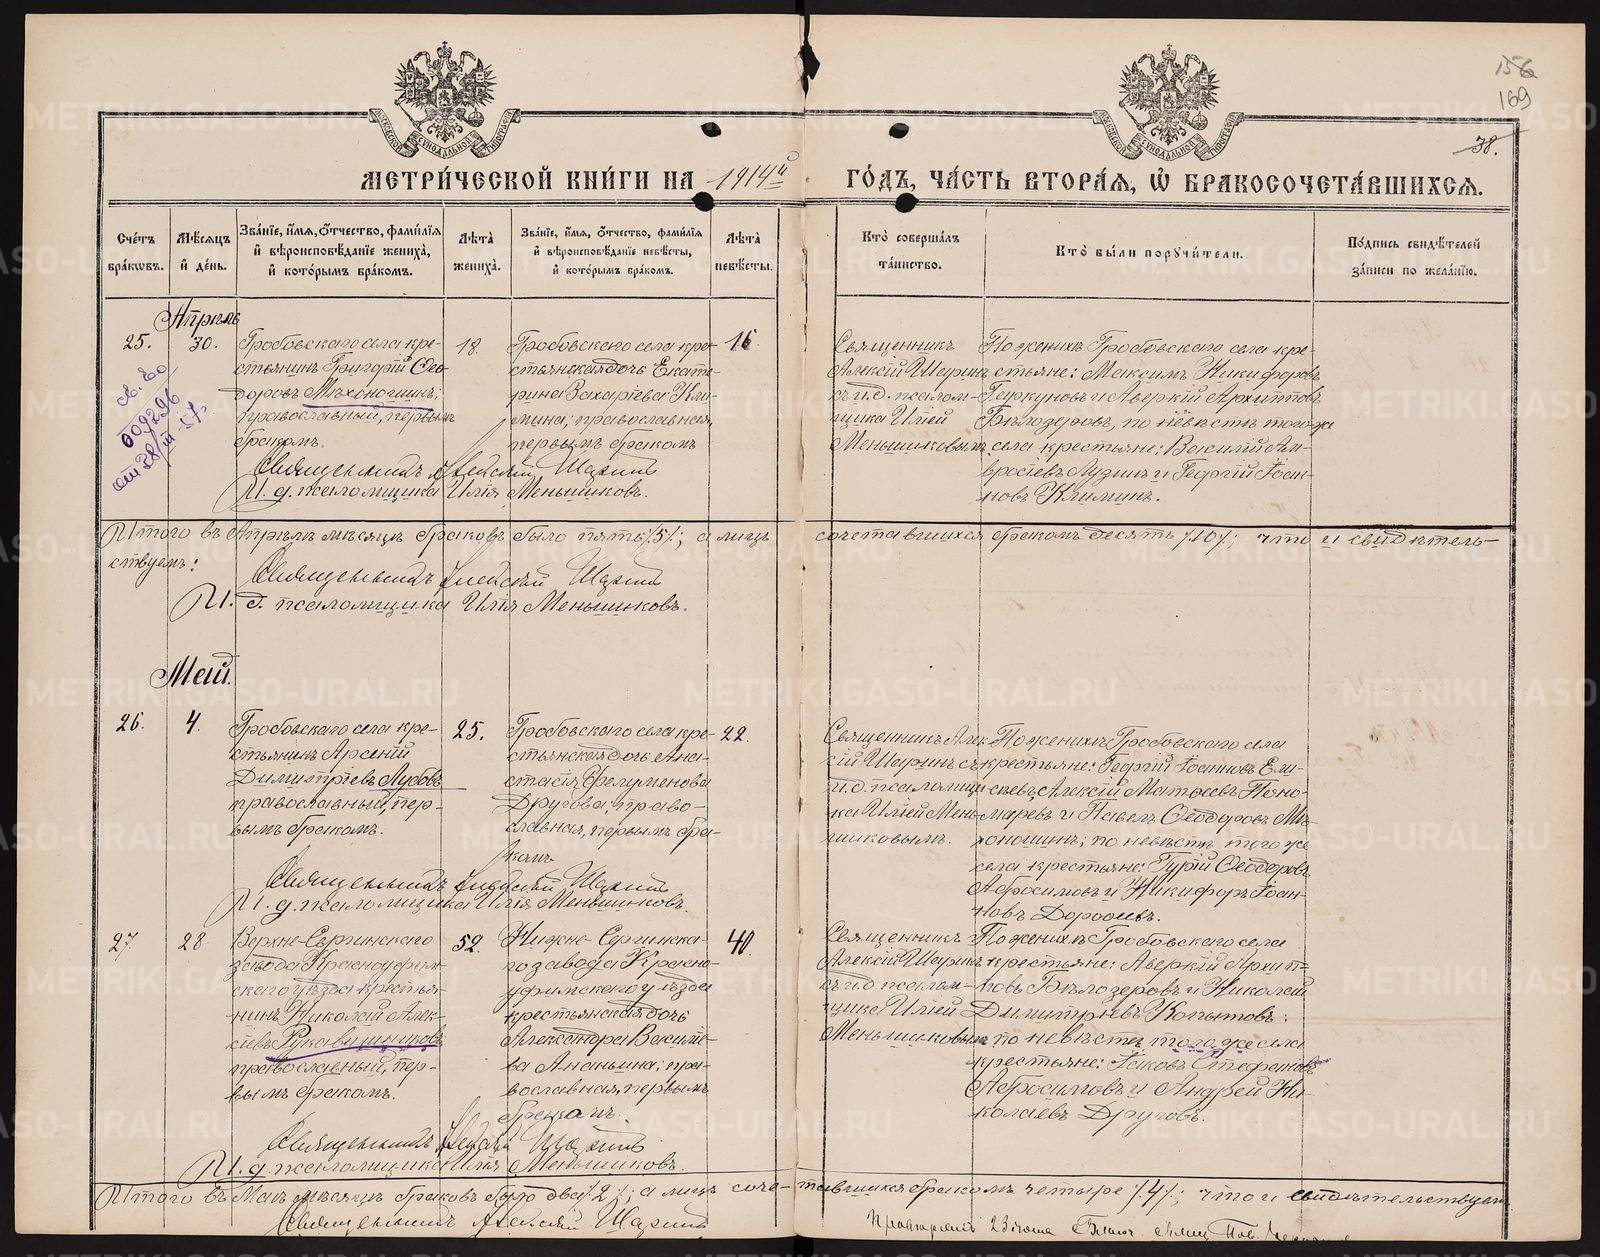 156
169
38.
МЕТРИ́ЧЕСКОЙ КНИ́ГИ НА 1914й ГО́ДЪ, ЧА́СТЬ ВТОРА́Я, Ѡ БРАКОСОЧЕТА́ВШИХСЯ.
Сче́тъ бра́кωвъ.
Мѣ́сяцъ и де́нь.
Зва́нїе, и́мя, о́тчество, фами́лїя и вѣроисповѣ́данїе жениха̀, и кото́рымъ бра́комъ.
Лѣ́та жениха̀.
Зва́нїе, и́мя, о́тчество, фами́лїя и вѣроисповѣ́данїе невѣ́сты, и кото́рымъ бра́комъ.
Лѣ́та невѣ́сты.
Кто̀ соверша́лъ та́инство.
Кто̀ бы́ли поручи́тели.
По́дпись свидѣ́телей за́писи по жела́нїю.
Апрѣль
25.
30.
Гробовскаго села кре-
стьянинъ Григорій Ѳео-
доровъ Мѣхоношинъ;
православный, первымъ
бракомъ.
18.
Гробовскаго села кре-
стьянская дочь Екате-
рина Захаріева Кли-
мина; православная,
первымъ бракомъ
16.
Священникъ
Алексій Шаринъ
съ и.д. псалом-
щика Иліей
Меньшиковымъ
По женихѣ Гробовскаго села кре-
стьяне: Максимъ Никифоровъ
Геркуновъ и Аверкій Архиповъ
Бѣлозеровъ, по невѣстѣ того же
села крестьяне: Василій Ам-
вросіевъ Лузинъ и Георгій Іоан-
новъ Климинъ.
Священникъ Алексій Шаринъ
И. д. псаломщика Илія Меньшиковъ.
Итого въ Апрѣлѣ мѣсяцѣ браковъ было пять /5/; а лицъ сочетавшихся бракомъ десять /10/; что и свидѣтель-
ствуемъ:
Священникъ Алексій Шаринъ
И. д. псаломщика Илія Меньшиковъ.
Май.
26.
4.
Гробовскаго села кре-
стьянинъ Арсеній
Димитріевъ Лубовъ
православный, пер-
вымъ бракомъ.
25.
Гробовскаго села кре-
стьянская дочь Ана-
стасія Филуменова
Другова; право-
славная, первымъ бра-
комъ
22.
Священникъ Алек-
сій Шаринъ съ
и.д. псаломщи-
ка Иліей Мень-
шиковымъ.
По женихѣ Гробовскаго села
крестьяне: Георгій Іоанновъ Ели-
сѣевъ, Алексій Матѳеевъ Поно-
маревъ и Павелъ Ѳеодоровъ Мѣ-
хоношинъ; по невѣстѣ того же
села крестьяне: Гурій Ѳеодоровъ
Абросимовъ и Никифоръ Іоан-
новъ Дороѳеевъ.
Священникъ Алексій Шаринъ
И. д. псаломщика Илія Меньшиковъ.
27.
28.
Верхне-Сергинскаго
завода Красноуфим-
скаго уѣзда крестья-
нинъ Николай Алек-
сіевъ Рукавишниковъ
православный, пер-
вымъ бракомъ.
52.
Нижне-Сергинска-
го завода Красно-
уфимскаго уѣзда
крестьянская дочь
Александра Василіе-
ва Ананьина; пра-
вославная, первымъ
бракомъ.
40.
Священникъ
Алексій Шаринъ
съ и.д. псалом-
щика Иліей
Меньшиковымъ
По женихѣ Гробовскаго села
крестьяне: Аверкій Архип-
повъ Бѣлозеровъ и Николай
Димитріевъ Копытовъ;
по невѣстѣ того же села
крестьяне: Іаковъ Стефановъ
Абросимовъ и Андрей Ни-
колаевъ Друговъ.
Священникъ Алексій Шаринъ
И. д. псаломщика Илія Меньшиковъ.
Итого въ Маѣ мѣсяцѣ браковъ было два /2/; а лицъ соче-тавшихся бракомъ четыре /4/; что и свидѣтельствуемъ
Священникъ Алексій Шаринъ
METRIKI.GASO-URAL.RU